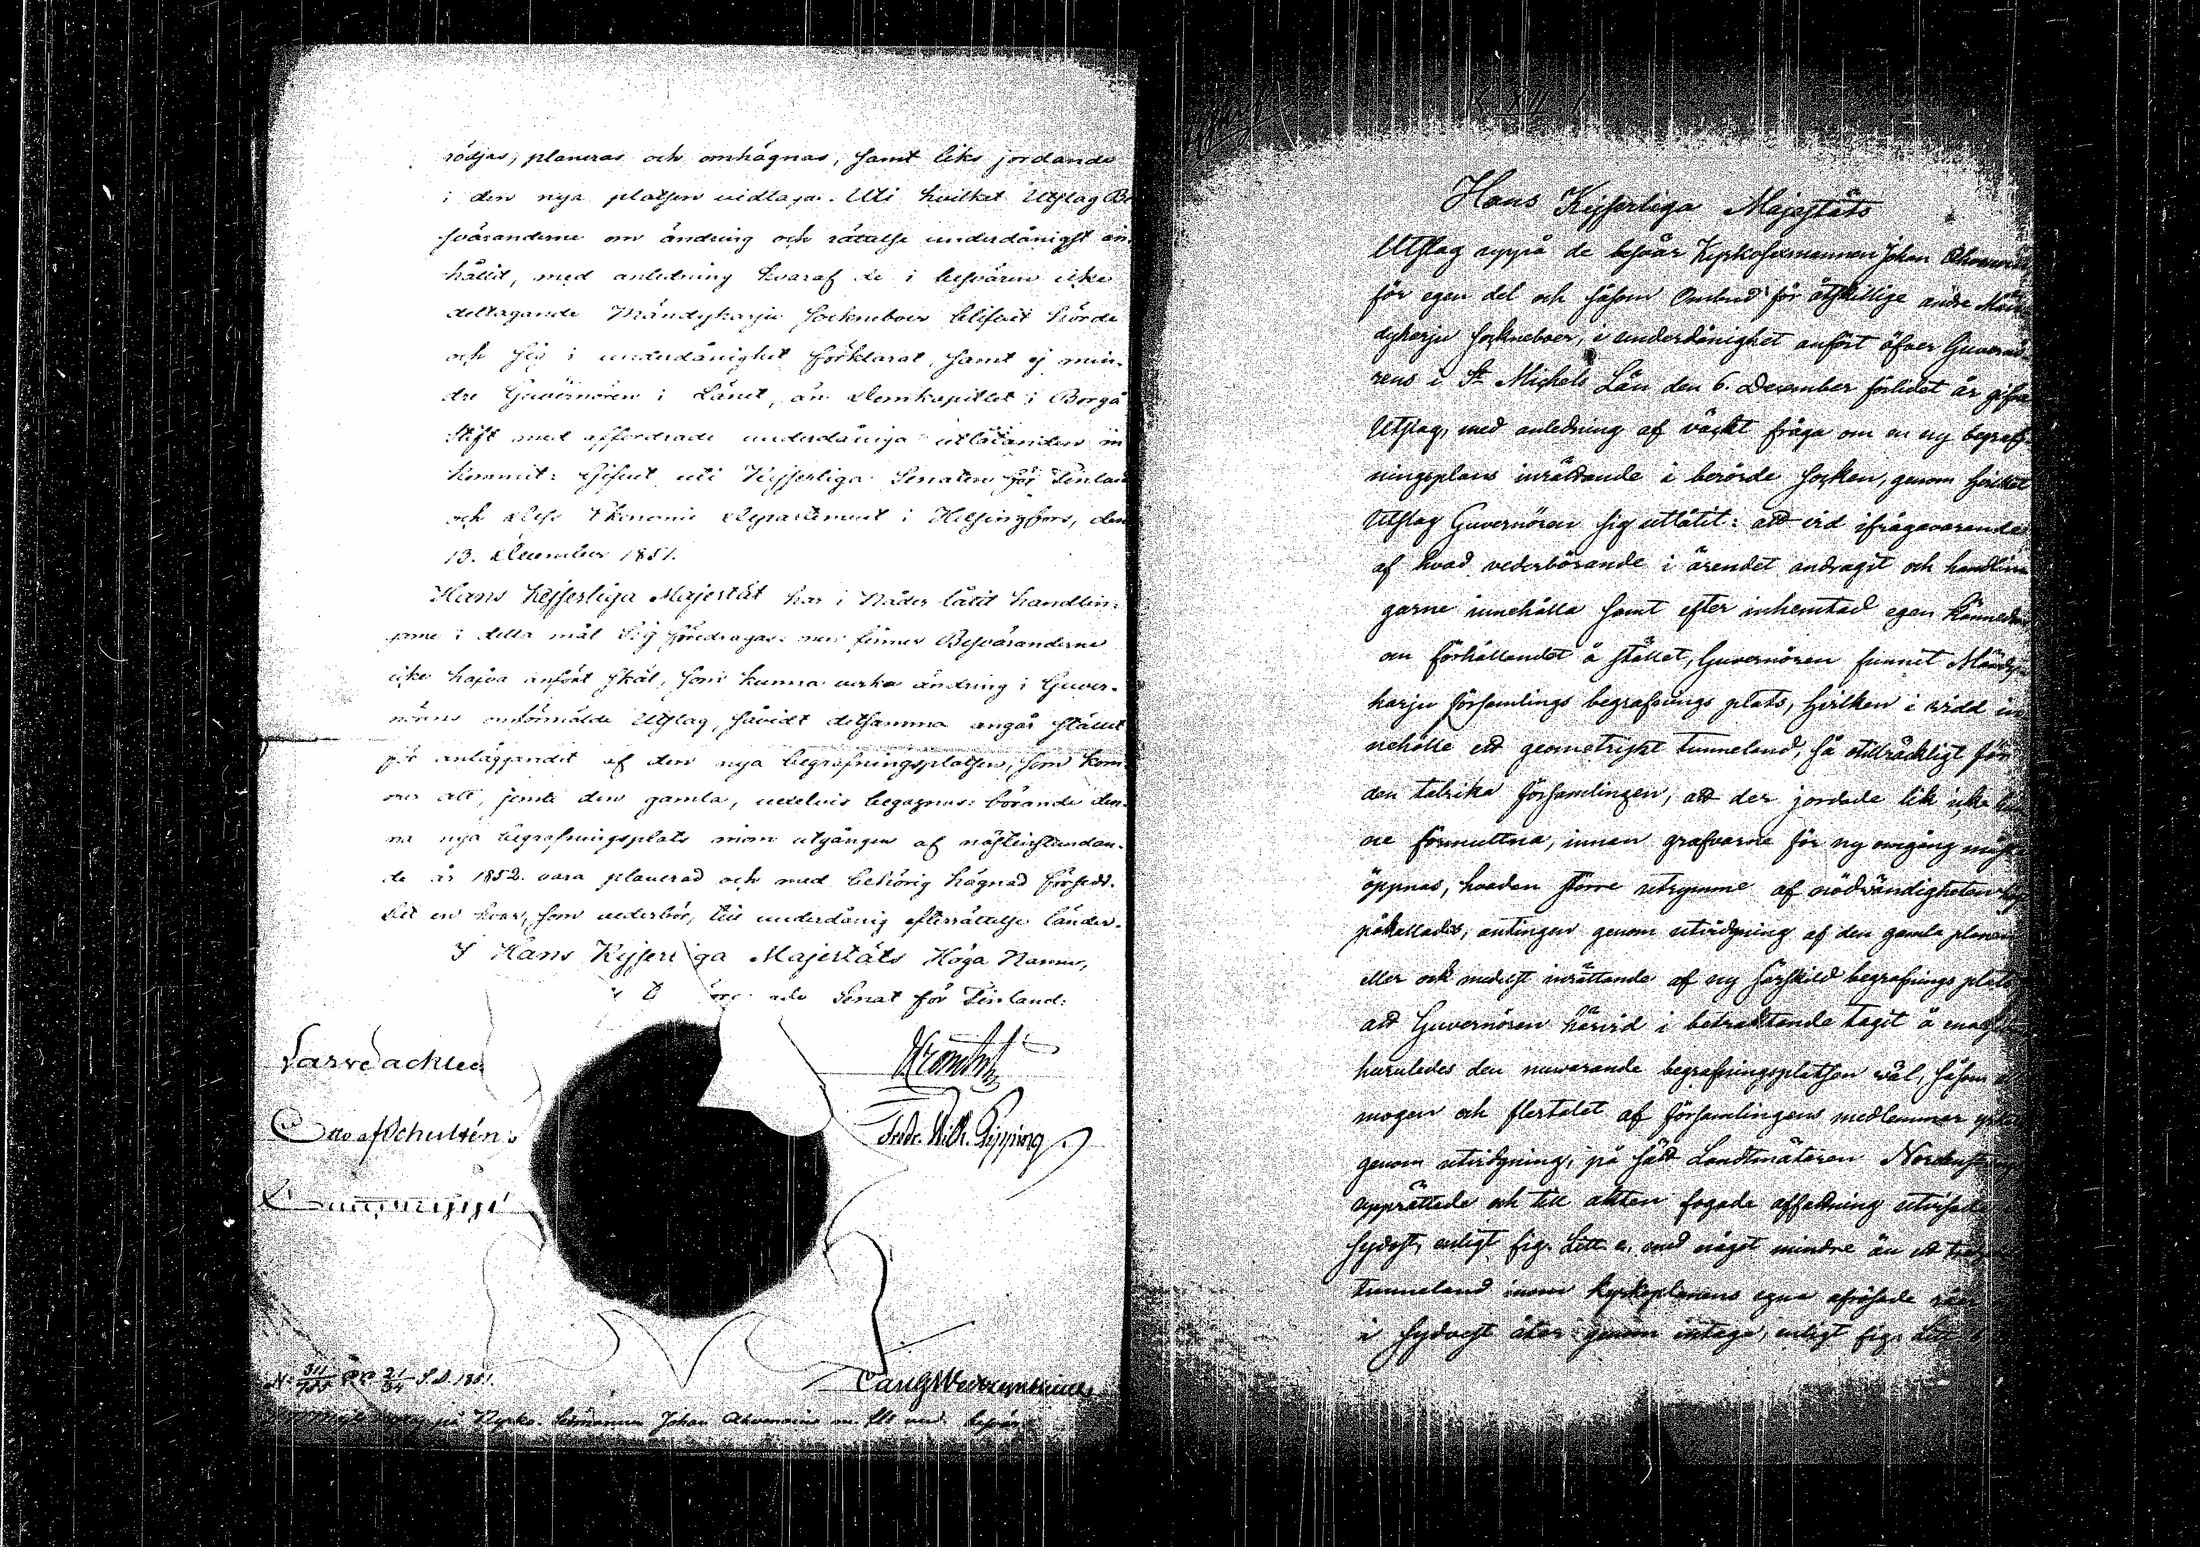 rödjas, planeras och omhägnas, samt liks jordande
i den nya platsen vidtaga. Uti hvilket Utslag Be
sväranderne om ändring och rättelse underdånigst an
hållit, med anledning hvaraf de i besvären icke
deltagande Mändyharju Sockneboer blifvit hörde
och sig i underdånighet förklarat, samt ej min-
dre Guvernören i Länet, än Domkapitlet i Borgå
Stift med affordrade underdåniga utlåtanden in
kommit: Gifvet uti Kejserliga Senaten för Finland
och dess Ekonomie Departement i Helsingfors, den
13. December 1851.
Hans Kejserliga Majestät har i Nåder låtit handlin-
garne i detta mål Sig föredragas: och finner Besväranderne
icke hafva anfört skäl, som kunna verka ändring i Guver-
nörens omförmälde Utslag, såvidt detsamma angår stället
för anläggandet af den nya begrafningsplatsen, som kom
mer att, jemte den gamla, vexelvis begagnas: börande den-
na nya begrafningsplats inom utgången af nästinstundan-
de år 1852. vara planerad och med behörig hägnad försedd.
Det en hvar, som vederbör, till underdånig efterrättelse länder.
I Hans Kejserliga Majestäts Höga Namn,
Senat för Finland:
Otto af Schultén
Fredr. Wilh. Pipping
N: 311/755 21/34 S.D. 1851.
på Kyrko-Sexmannen Johan Ahvenainen m. fl. besvär
Hans Kejserliga Majestäts
Utslag uppå de besvär Kyrkosexmannen Johan
för egen del och såsom Ombud för åtskillige andre Män
dyharju sockneboer, i underdånighet anfört öfver Guvernö-
rens i St Michels Län den 6. December förlidet år gifna
Utslag, med anledning af väckt fråga om en ny begraf-
ningsplans inrättande i berörde socken, genom hvilket
Utslag Guvernören sig utlåtit: att vid ifrågavarande
af hvad vederbörande i ärendet andragit och handlin
garne innehålla samt efter inhemtad egen kännedom
om förhållandet å stället, Guvernören funnit Mändy-
harju församlings begrafnings plats, hvilken i vidd in
nehålle ett geometriskt tunneland, så otillräckligt för
den talrika församlingen, att der jordade lik icke hin
ne förmultna, innan grafvarne för ny omgång måste
öppnas, hvadan större utrymme af nödvändigheten
påkallades, antingen genom utvidgning af den gamla planen
eller ock medelst inrättande af ny särskild begrafnings plats
att Guvernören härvid i betraktande tagit å ena
huruledes den nuvarande begrafningsplatsen väl, såsom
mogen och flertalet af församlingens medlemmar
genom utvidgning, på sätt Landtmätaren
upprättade och till akten fogade affattning utvisade
sydost, enligt fig. Litt. a. med något mindre än ett
tunneland inom kyrkoplanens egna afrösade råer
i sydvest åter genom intaga, enligt fig. Litt.